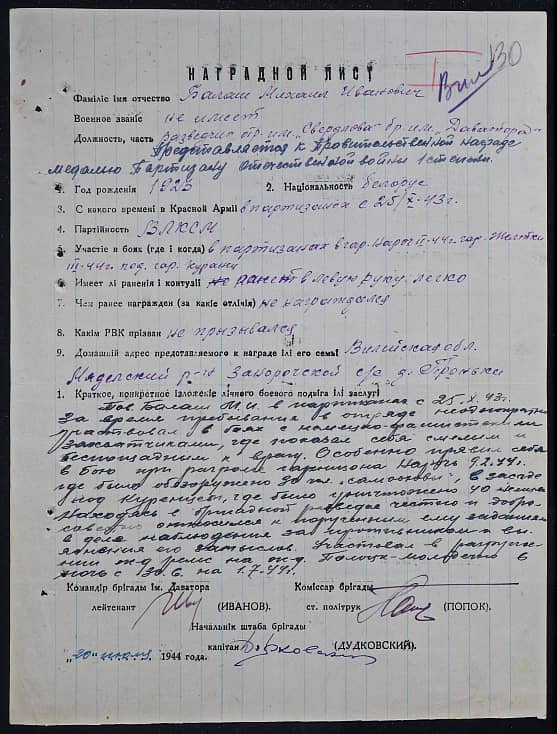 30
НАГРАДНОЙ ЛИСТ
Фаміліє імя отчество Балаш Михаил Иванович
Военное званіє не имеет
Должность, часть разведчик отр. им. "Свердлова" бр. им. "Даватора"
Представляется к Правительственной награде
медалью Партизану отечественной войны I степени.
1. Год рождения 1925 2. Національность белорус
3. С какого времени в Красной Армії в партизанах с 25/X-43г.
4. Партийность ВЛКСМ
5. Участіє в боях (где і когда) в партизанах в гар. Нарочь II-44г. гар. Желтки
III-44г. под. гар. Куранец
6. Имеет лі раненія і контузії не ранен в левую руку легко
7. Чем ранее награжден (за какіє отлічія) не награждался
8. Какім РВК прізван не призывался
9. Домашній адрес представляемого к награде ілі его семьі Вилейская обл.
Мядельский р-н Занорочский с/с д. Проньки
1. Краткое, конкретноє ізложеніє лічного боевого подвіга ілі заслуг
Тов. Балаш М.И. в партизанах с 25.X.43г.
За время пребывания в отряде неоднократно
участвовал в боях с немецко-фашистскими
захватчиками, где показал себя смелым и
беспощадным к врагу. Особенно проявил себя
в бою при разгроме гарнизона Нарочь 9.2.44г.
где было обезоружено 30 чел. "самооховы", в засаде
под Куренцем, где было уничтожено 40 немцев
Находясь в бригадной разведке честно и добро-
совестно относился к порученным ему заданиям
в деле наблюдения за противником и вы-
яснения его замыслов. Участвовал в разруше-
нии ж.д. рельс на ж.д. Полоцк-Молодечно в
ночь с 130.6. на 1.7.44г.
Командір бригады ім. Даватора Комиссар брігады
лейтенант (ИВАНОВ). ст. політрук (ПОПОК).
Начальнік штаба брігады
капітан (ДУДКОВСКИЙ).
"20" июля 1944 года.